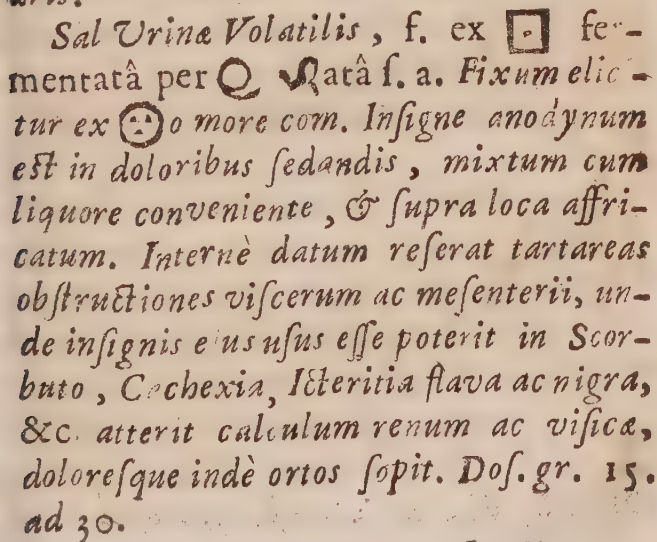 Sal Urinæ Volatilis, f. ex 🞔 fe-
mentatâ per Q atâ ſ. a. Fixum elic-
tur ex o more com. Inſigne anodynum
eſt in doloribus ſedandis, mixtum cum
liquore conveniente, & ſupra loca affri-
catum. Internè datum reſerat tartareas
obſtructiones viſcerum ac meſenterii, un-
de inſignis eius uſus eſſe poterit in Scor-
buto, Cachexia, Icteritia flava ac nigra,
&c. atterit calculum renum ac viſicæ,
doloreſque indè ortos ſopit. Doſ. gr. 15.
ad 30.